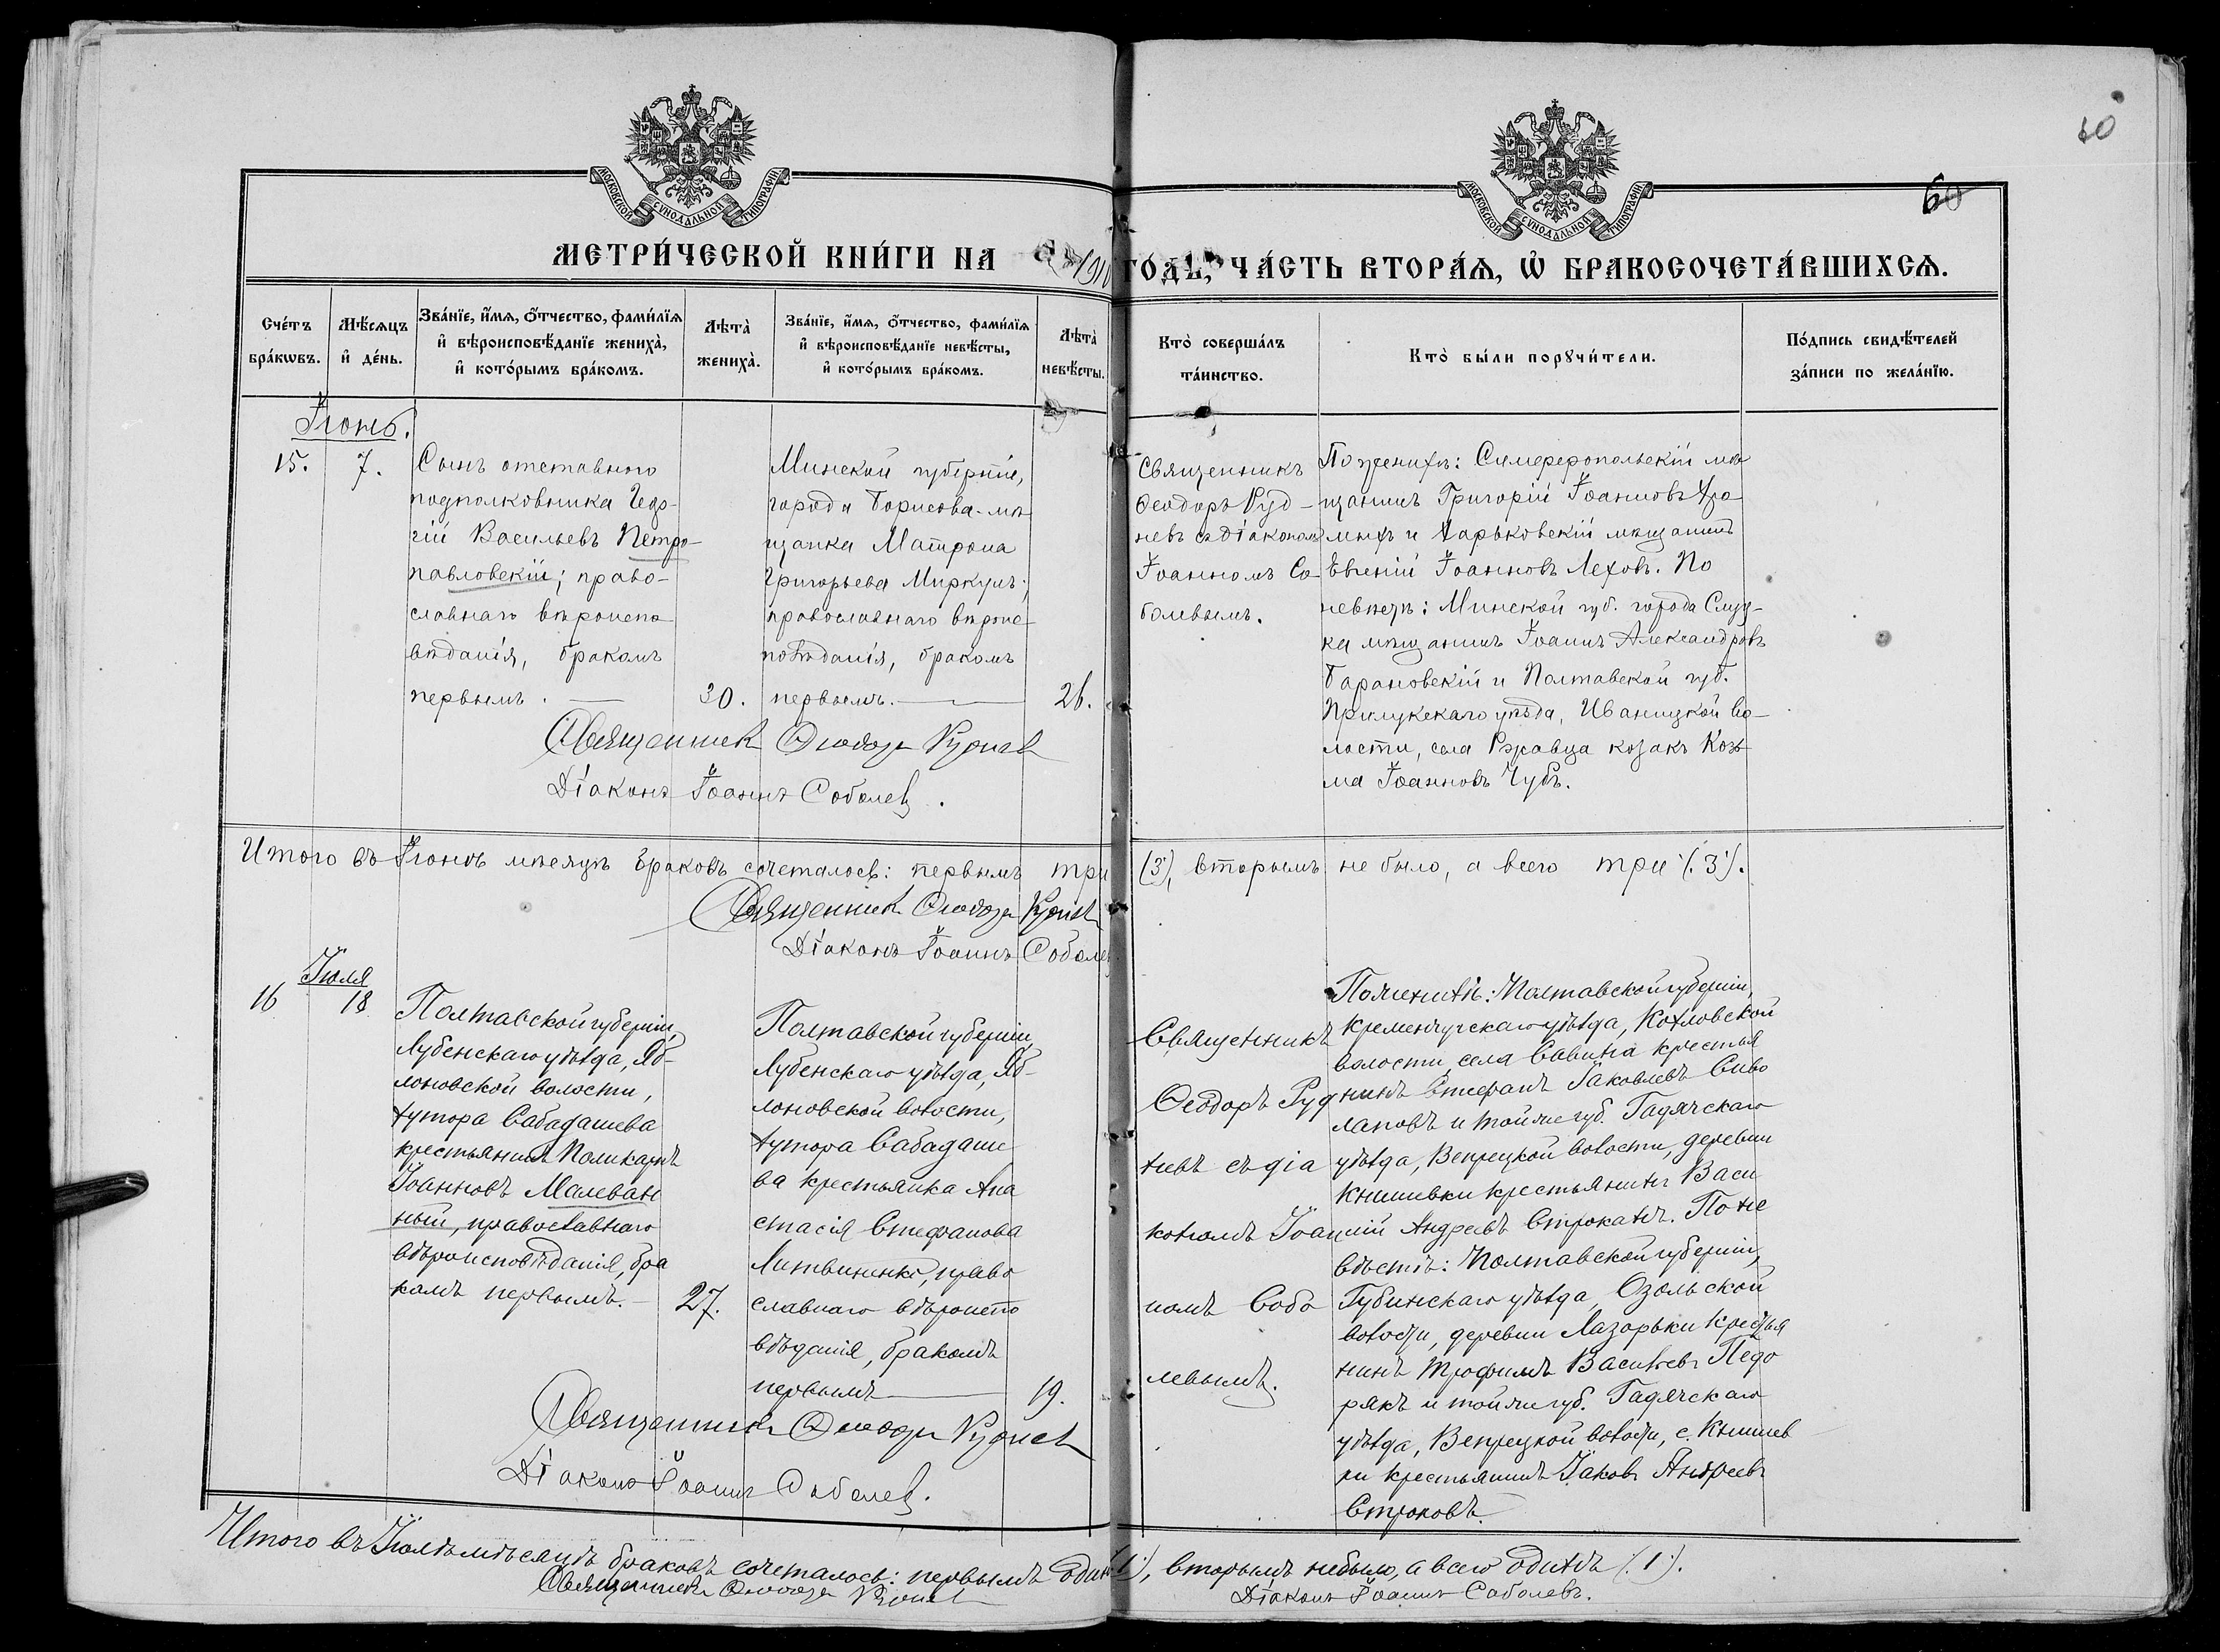 60
60
МОСКОВСКОЙ СУНОДАЛЬНОЙ ТИПОГРАФІИ
МОСКОВСКОЙ СУНОДАЛЬНОЙ ТИПОГРАФІИ
МЕТРИ́ЧЕСКОЙ КНИ́ГИ НА 1910 ГОДЪ, ЧА́СТЬ ВТОРА́Ѧ, Ѡ҆ БРАКОСОЧЕТА́ВШИХСѦ.
Сче́тъ бра́кѡвъ.
Мѣ́сѧцъ и҆ де́нь.
Зва́нїе, и҆́мѧ, ѻ҆́тчество, фами́лїѧ и҆ вѣроисповѣ́данїе жениха̀, и҆ кото́рымъ бра́комъ.
Лѣта̀ жениха̀.
Зва́нїе, и҆́мѧ, ѻ҆́тчество, фами́лїѧ и҆ вѣроисповѣ́данїе невѣ́сты, и҆ кото́рымъ бра́комъ.
Лѣта̀ невѣ́сты.
Кто̀ соверша́лъ та́инство.
Кто̀ бы́ли порꙋчи́тели.
По́дпись свидѣ́телей за́писи по жела́нїю.
Іюнь.
15.
7.
Сынъ отставного
подполковника Геор-
гій Васильевъ Петро-
павловскій; право-
славнаго вѣроиспо
вѣданія, бракомъ
первымъ.
30.
Минской губерніи,
города Борисова мѣ
щанка Матрона
Григорьева Миркуль;
православнаго вѣроис
повѣданія, бракомъ
первымъ.
26.
Священникъ
Ѳеодоръ Руд-
невъ съ діакономъ
Іоанномъ Со
болевымъ.
По женихѣ: Симферопольскій мѣ
щанинъ Григорій Іоанновъ
и Харьковскій мѣщанинъ
Евгеній Іоанновъ Леховъ. По
невѣстѣ: Минской губ. города Слуц-
ка мѣщанинъ Іоаннъ Александровъ
Барановскій и Полтавской губ.
Прилукскаго уѣзда, Иваницкой во-
лости, села Ржавца козакъ Козь
ма Іоанновъ Чубъ.
Священникъ Ѳеодоръ Рудневъ
Діаконъ Іоаннъ Соболевъ.
Итого въ Іюнѣ мѣсяцѣ браковъ сочеталось: первымъ три (3), вторымъ не было, а всего три (3).
Священникъ Ѳеодоръ Рудневъ
Діаконъ Іоаннъ Соболев
Іюля
16
18
Полтавской губерніи,
Лубенскаго уѣзда, Яб-
лоновской волости,
хутора Сабадашева
крестьянинъ Поликарпъ
Іоанновъ Малеван
ный, православнаго
вѣроисповѣданія, бра
комъ первымъ.
27.
Полтавской губерніи,
Лубенскаго уѣзда, Яб-
лоновской волости,
хутора Сабадаше
ва крестьянка Ана
стасія Стефанова
Литвиненко, право
славнаго вѣроиспо
вѣданія, бракомъ
первымъ
19.
Священникъ
Ѳеодоръ Руд
невъ съ діа
кономъ Іоан
номъ Собо
левымъ.
По женихѣ: Полтавской губерніи,
Кременчугскаго уѣзда, Козловской
волости, села Савина крестья
нинъ Стефанъ Іаковлевъ Сиво
лаповъ и той же губ. Гадячскаго
уѣзда, Веприцкой волости, деревни
Книшевки крестьянинъ Васи
лій Андреевъ Строкань. По не
вѣстѣ: Полтавской губерніи,
уѣзда, Озольской
волости, деревни Лазорьки крестья
нинъ Трофимъ Васильевъ Педо
рякъ и той же губ. Гадячскаго
уѣзда, Веприцкой волости, с. Книшев
ки крестьянинъ Іаковъ Андреевъ
Строковъ.
Священникъ Ѳеодоръ Рудневъ
Діаконъ Іоаннъ Соболевъ.
Итого въ Іюлѣ мѣсяцѣ браковъ сочеталось: первымъ одинъ (1), вторымъ небыло, а всего одинъ (1).
Священникъ Ѳеодоръ Рудневъ
Діаконъ Іоаннъ Соболевъ.